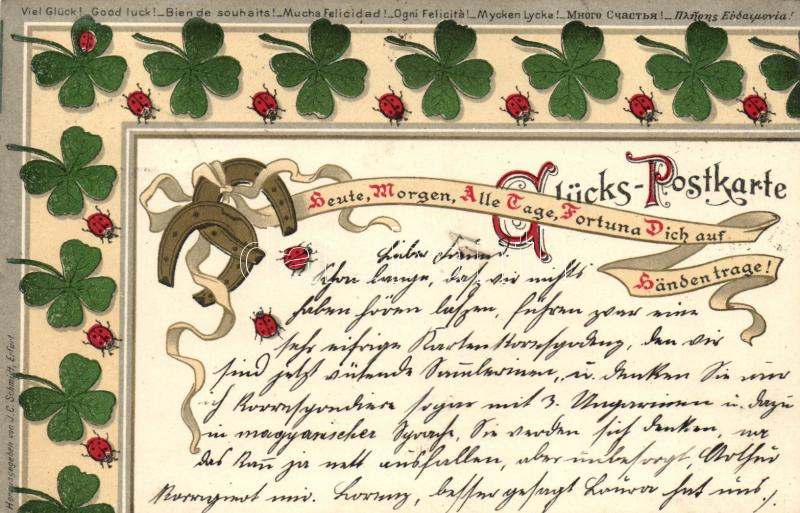 Viel Glück! Good luck! – Bien de souhaits! – Mucha Felicidad! – Ogni Felicità! – Mycken Lycke! – Много Счастья! – Πλήρης Εὐδαιμονία!
Glücks-Postkarte
Heute, Morgen, Alle Tage, Fortuna Dich auf
Händen trage!
Lieber Freund.
Schon lange, daß wir nichts
haben hören laßen, führen zwar eine
sehr eifrige Kartenkorrespodenz, den wir
sind jetzt wütende Sammlerinen, u. denken Sie nur
ich korrespondiere sogar mit 3. Ungarinnen u. dazu
in magyarischer Sprache, Sie werden sich denken, na
das kan ja nett ausfallen, aber unbesorgt, Arthur
korrigiert mir. Lorenz, besser gesagt Laura hat uns
Herausgegeben von J. C. Schmidt, Erfurt